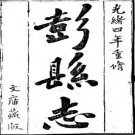 光緒四年重修
彭縣志
文廟藏版